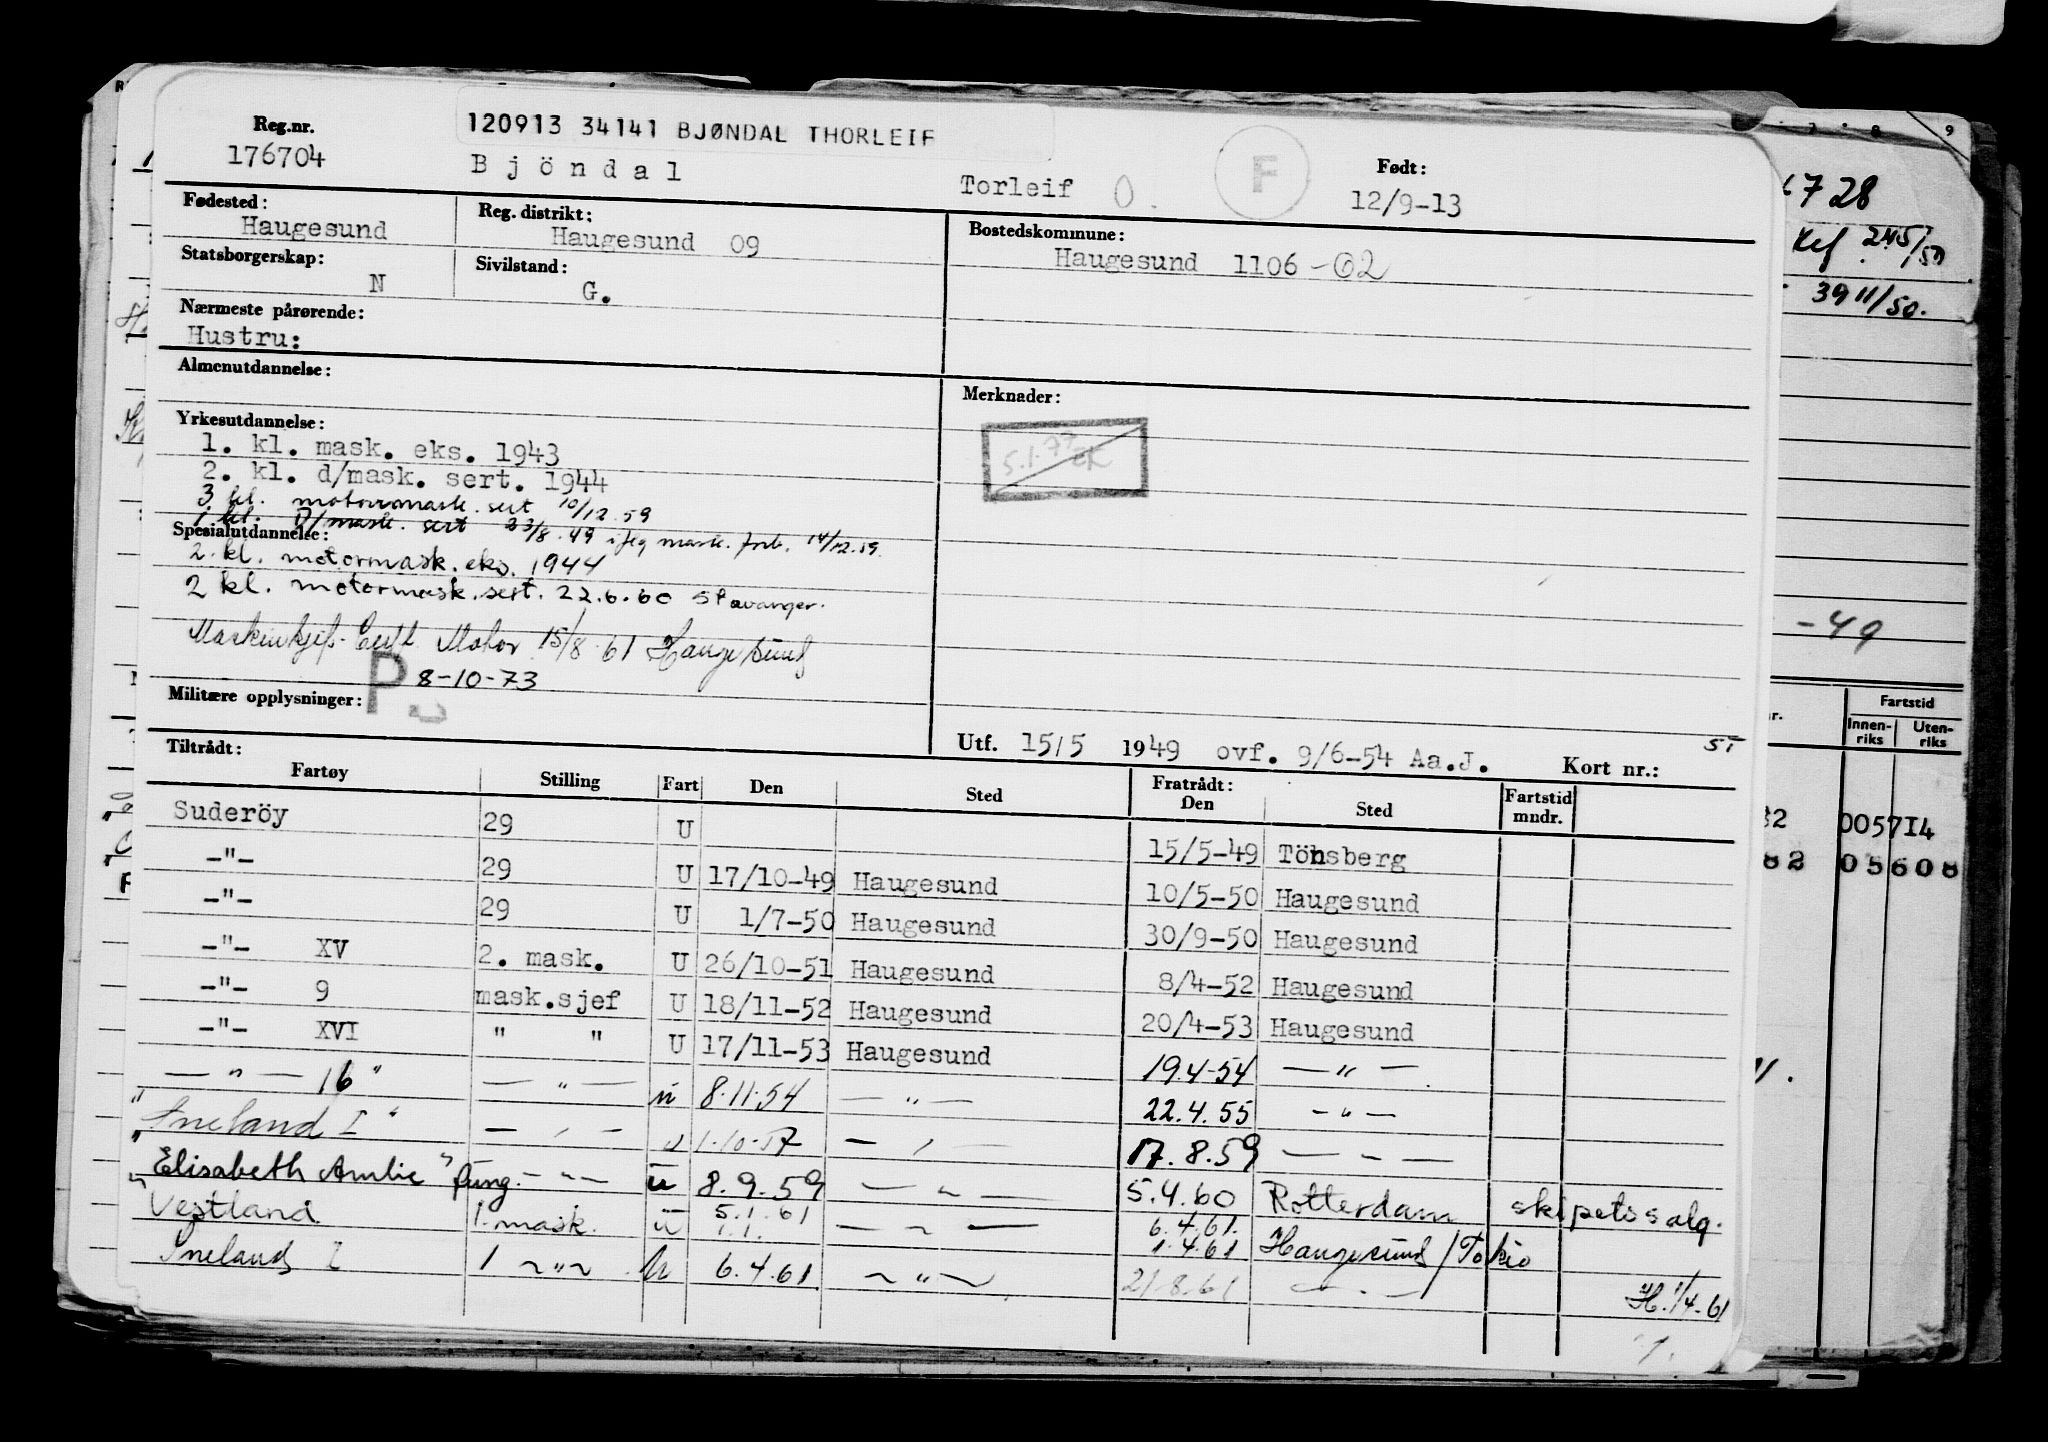 Reg.nr.
176704
120913 34141 BJØNDAL THORLEIF
Bjöndal
Torleif O.
F
Født:
12/9-13
Fødested:
Haugesund
Reg. distrikt:
Haugesund 09
Bostedskommune:
Haugesund 1106 -02
Statsborgerskap:
N
Sivilstand:
G.
Nærmeste pårørende:
Hustru:
Almenutdannelse:
Merknader:
5.1.77
Yrkesutdannelse:
1. kl. mask. eks. 1943
2. kl. d/mask. sert. 1944
3 kl. motormask. sert 10/12.59
1 kl. D/mask. sert 23/8.49 mask. forb. 14/12.59
Spesialutdannelse:
2. kl. motormask. eks. 1944
2 kl. motormask. sert. 22.6.60 Stavanger.
Maskinkjefs. Motor 15/8.61 Haugesund
P 8-10-73
Militære opplysninger:
Utf. 15/5 1949 ovf. 9/6-54 Aa.J.
Kort nr.:
Tiltrådt:
Fartøy Stilling Fart Den Sted Fratrådt: Den Sted Fartstid mndr.
Suderöy 29 U 15/5-49 Tönsberg
-"- 29 U 17/10-49 Haugesund 10/5-50 Haugesund
-"- 29 U 1/7-50 Haugesund 30/9-50 Haugesund
-"- XV 2. mask. U 26/10-51 Haugesund 8/4-52 Haugesund
-"- 9 mask.sjef U 18/11-52 Haugesund 20/4-53 Haugesund
-"- XVI " " U 17/11-53 Haugesund 19.4-54 -"-
-"- 16" -"- u 8.11.54 -"- 22.4.55 -"-
" I" - , - u 1.10.57 - , - 17.8.59 -"-
"Elisabeth Amlie" fung. -"- u 8.9.59 -"- 5.4.60 Rotterdam skipets salg.
"Vestland 1. mask. u 5.1.61 -"- 6.4.61. 1.4.61 Haugesund/Tokio
I 1 -"- u 6.4.61 -"- 21.8.61 -"-
H. 1/4-61
28
245/50
3911/50.
-49
Fartstid
Innen-
riks
Uten-
riks
005714
82 05608